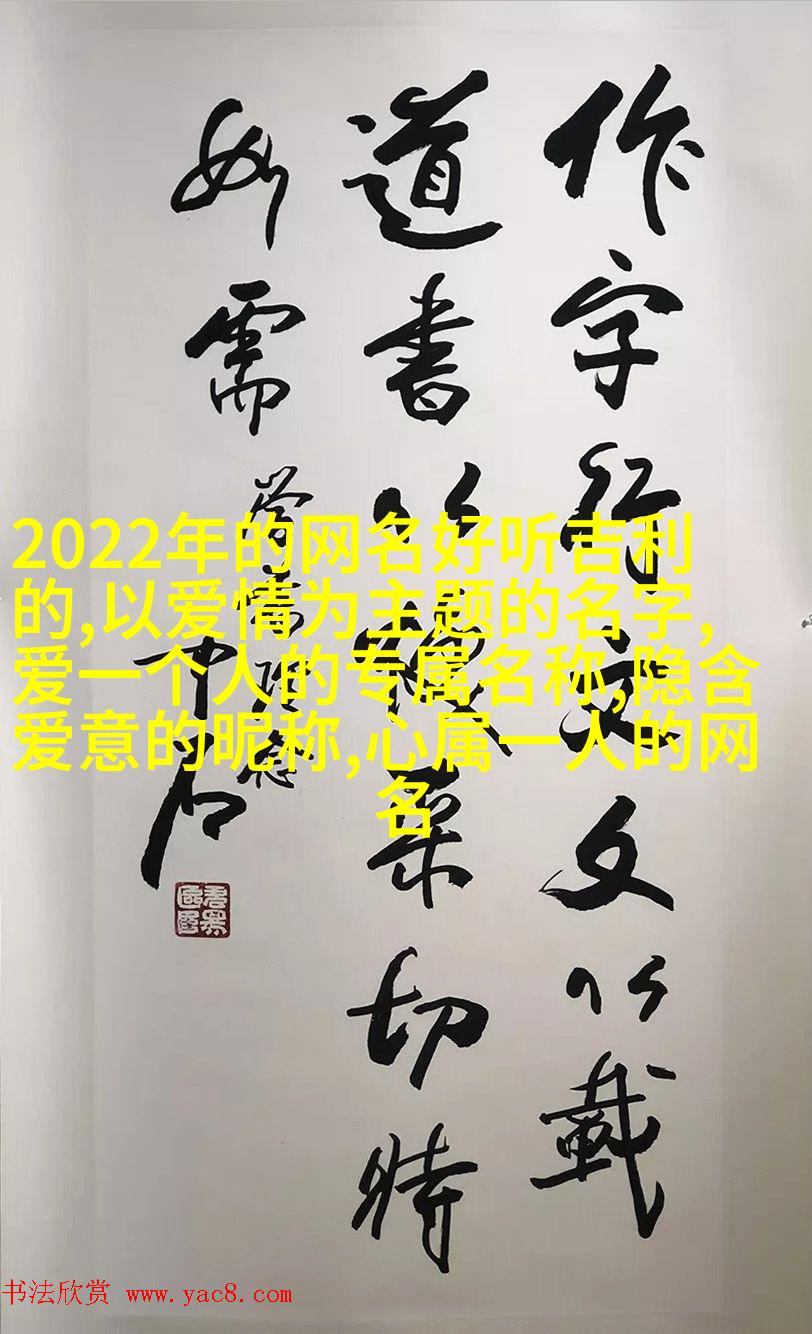 作字行文文以載
道書以煥采切時
如需
中石
2022年的网名好听吉利
的,以爱情为主题的名字,
爱一个人的专属名称,隐含
爱意的昵称,心属一人的网
名
书法欣赏 www.yac8.com